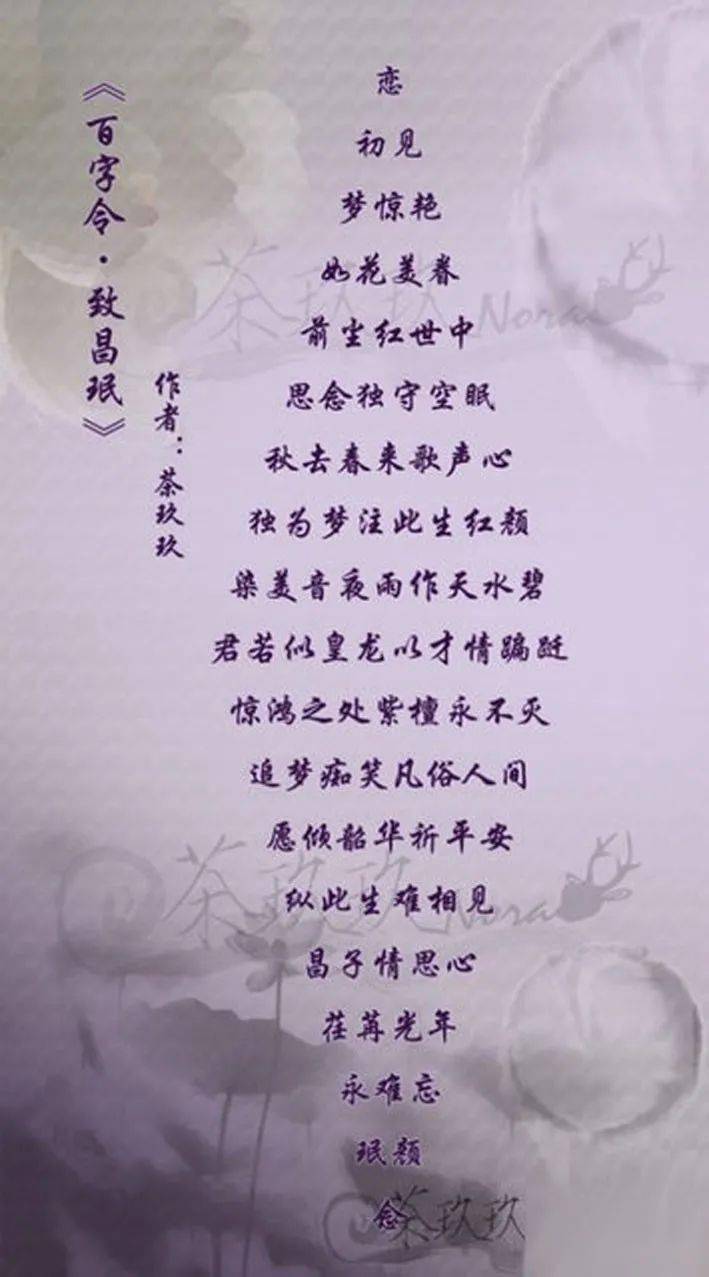 《百字令·致昌珉》
作者：茶玖玖
恋
初见
梦惊艳
如花美眷
前尘红世中
思念独守空眠
秋去春来歌声心
独为梦注此生红颜
染美音夜雨作天水碧
君若似皇龙以才情蹁跹
惊鸿之处紫檀永不灭
追梦痴笑凡俗人间
愿倾韶华祈平安
纵此生难相见
昌子情思心
荏苒光年
永难忘
珉颜
念
@茶玖玖Nora
@茶玖玖Nora
@茶玖玖